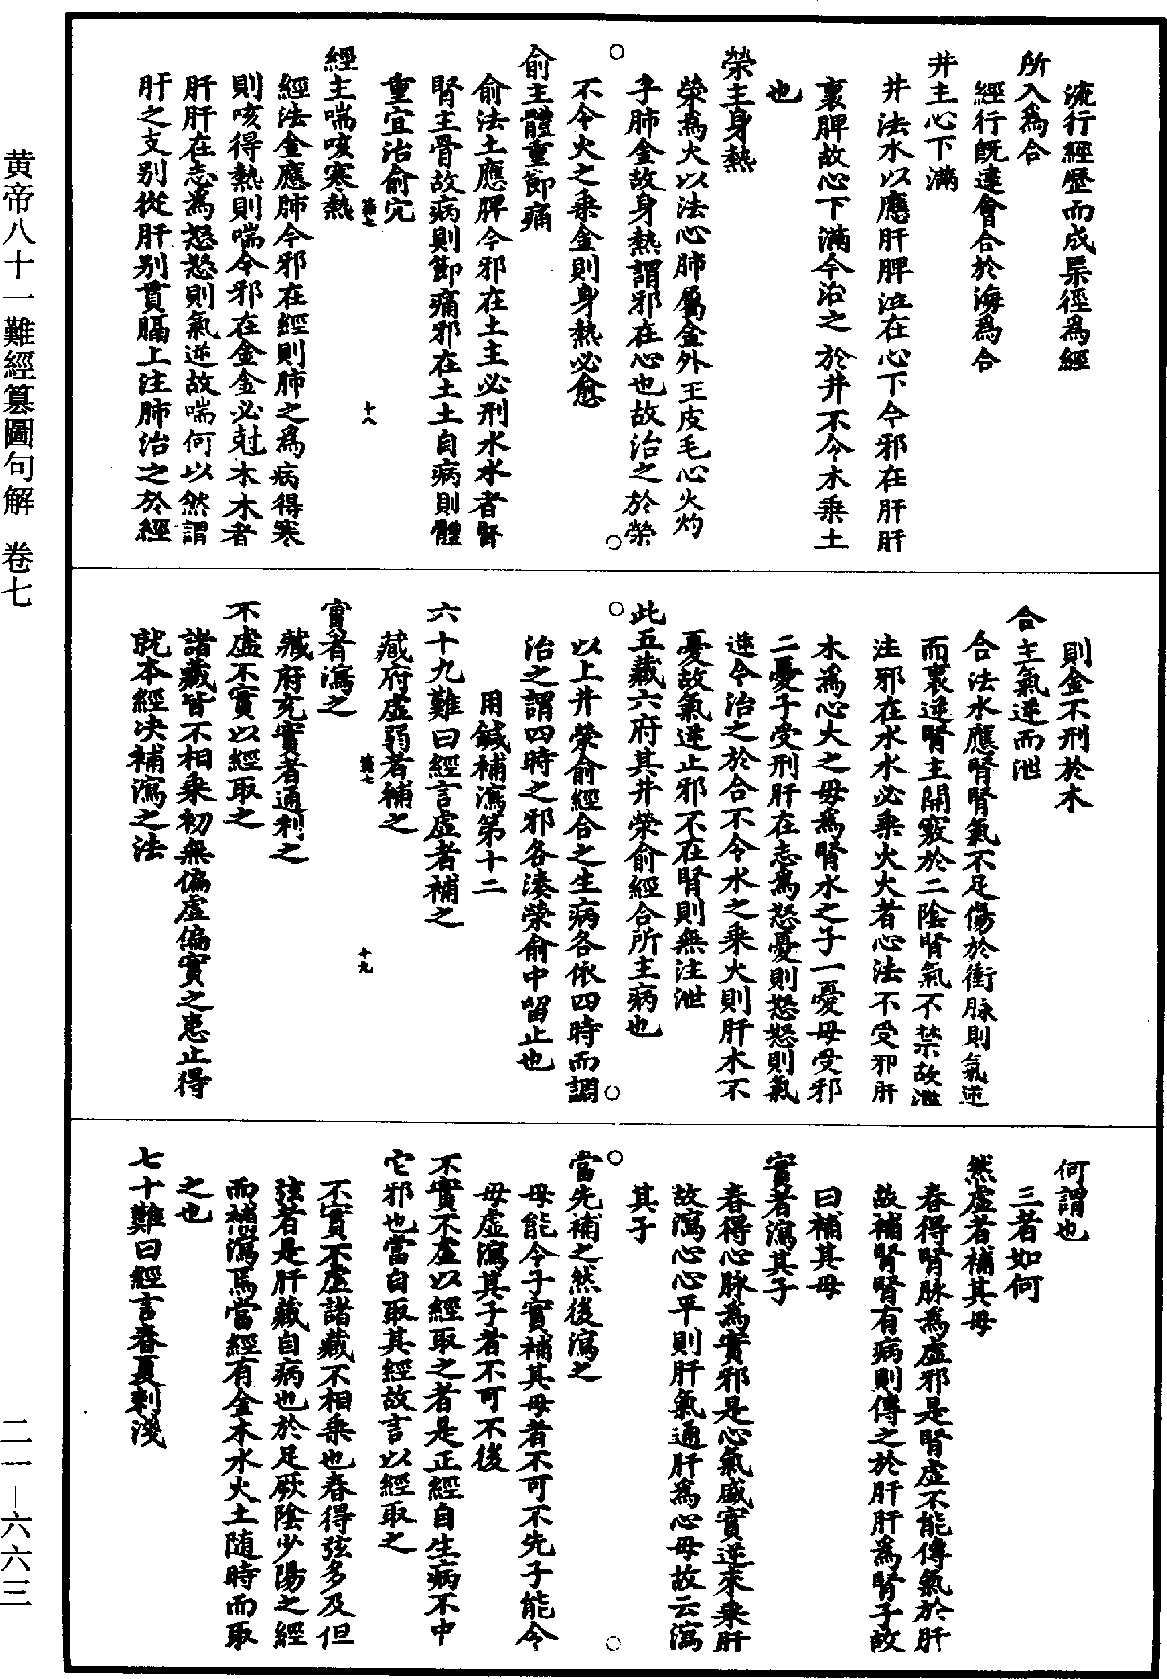 流行經歷而成渠徑為經
所入為合
經行既達會合於海為合
井主心下滿
井法水以應肝脾泣在心下今邪在肝肝
裏脾故心下滿今治之於井不令木乘土
也
榮主身熱
榮為火以法心肺屬金外主皮毛心火灼
于肺金故身熱謂邪在心也故治之於榮
不令火之乘金則身熱必愈
俞主體重節痛
俞法土應脾今邪在土土必刑水水者腎
腎主骨故病則節痛邪在土土自病則體
重宜治俞穴
難七
十八
經主喘咳寒熱
經法金應肺今邪在經則肺之為病得寒
則咳得熱則喘今邪在金金必尅木木者
肝肝在志為怒怒則氣逆故喘何以然謂
肝之支别從肝别貫膈上注肺治之於經
則金不刑於木
合主氣逆而泄
合法水應腎腎氣不足傷於衝脉則氣逆
而裏逆腎主開竅於二陰腎氣不禁故泄
注邪在水水必乘火火者心法不受邪肝
木為心火之母為腎水之子一憂母受邪
二憂子受刑肝在志為怒憂則怒怒則氣
逆今治之於合不令水之乘火則肝木不
憂故氣逆止邪不在腎則無注泄
此五藏六府其井榮俞經合所主病也
以上井榮俞經合之生病各依四時而調
治之謂四時之邪各湊榮俞中留止也
用鍼補瀉第十二
六十九難曰經言虛者補之
藏府虛弱者補之
難七
十九
實者瀉之
藏府充實者通利之
不虛不實以經取之
諸藏皆不相乘初無偏虛偏實之患止得
就本經决補瀉之法
何謂也
三者如何
然虛者補其母
春得腎脉為虛邪是腎虛不能傳氣於肝
故補腎腎有病則傳之於肝肝為腎子故
曰補其母
實者瀉其子
春得心脉為實邪是心氣盛實逆來乘肝
故瀉心心平則肝氣通肝為心母故云瀉
其子
當先補之然後瀉之
母能令子實補其母者不可不先子能令
母虛瀉其子者不可不後
不實不虛以經取之者是正經自生病不中
它邪也當自取其經故言以經取之
不實不虛諸藏不相乘也春得弦多及但
弦者是肝藏自病也於足厥陰少陽之經
而補瀉焉當經有金木水火土隨時而取
之也
七十難曰經言春夏刺淺
黄帝八十一難經纂圖句解 卷七
二一—六六三